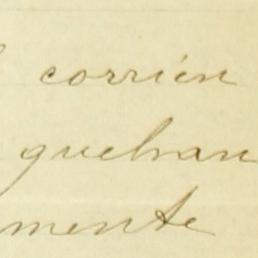 corrien
quehan
mente